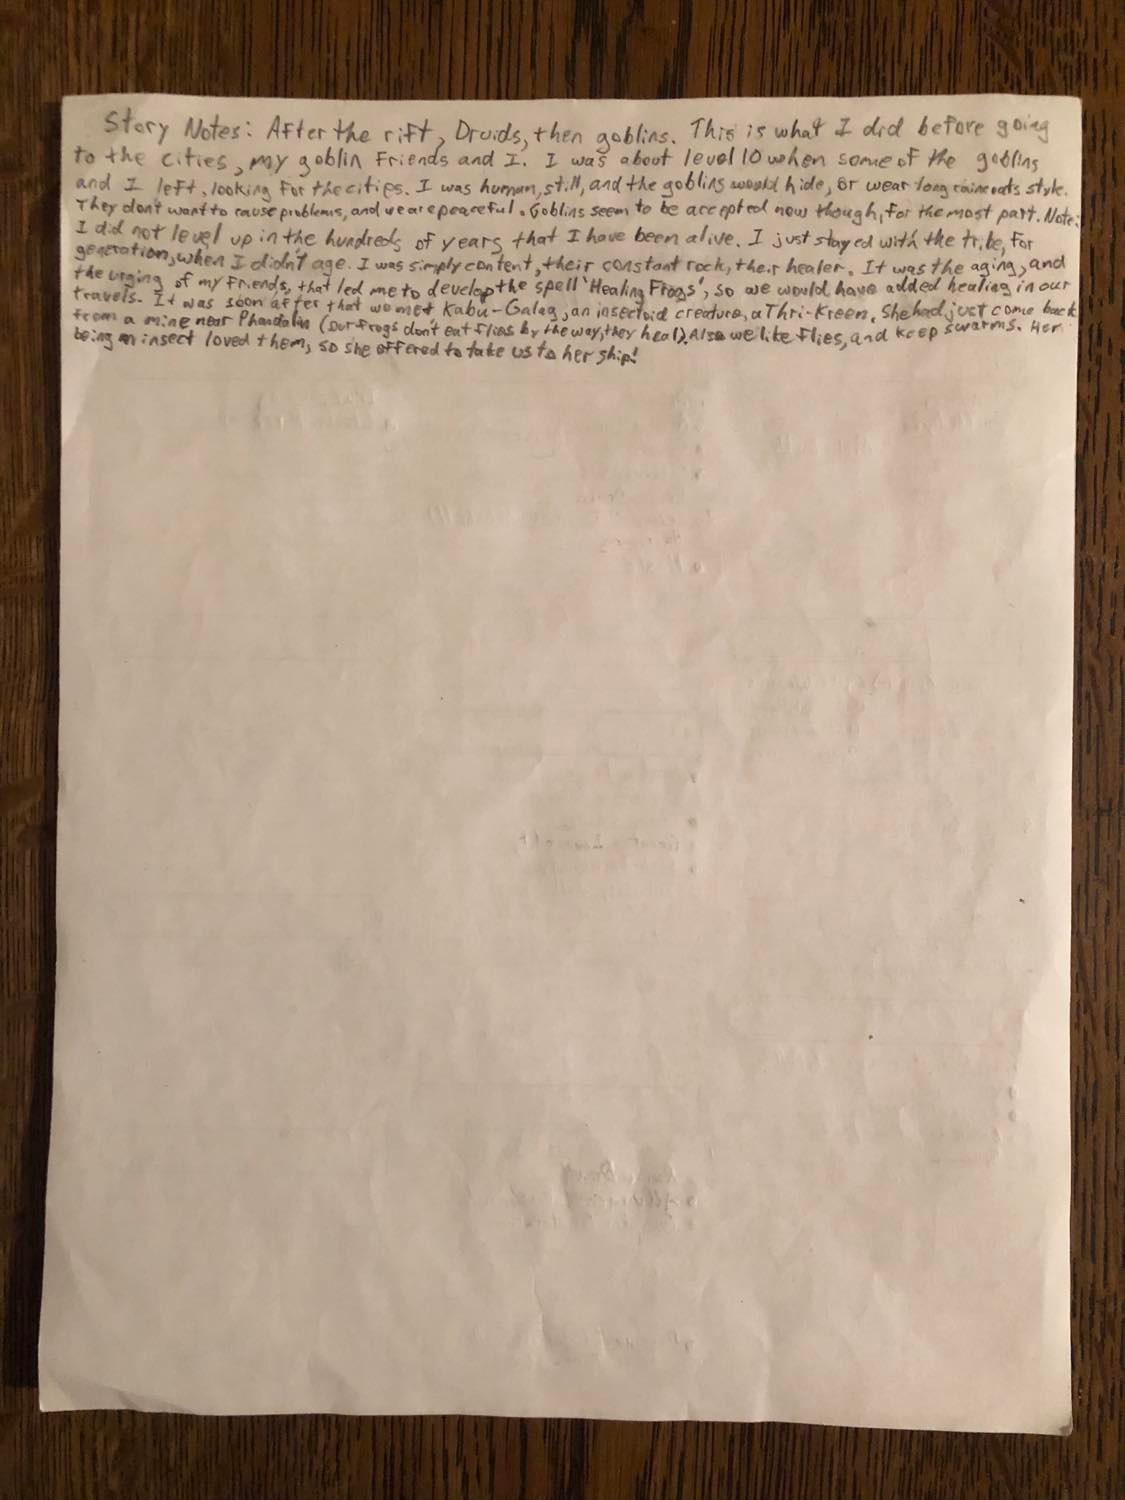 Story Notes: After the rift, Druids, then goblins. This is what I did before going
to the cities, my goblin Friends and I. I was about level 10 when some of the goblins
and I left, looking for the cities. I was human, still, and the goblins would hide, or wear long raincoats style.
They don't want to cause problems, and we are peaceful. Goblins seem to be accepted now though, for the most part. Note:
I did not level up in the hundreds of years that I have been alive. I just stayed with the tribe, for
generation, when I didn't age. I was simply content, their constant rock, their healer. It was the aging, and
the urging of my friends, that led me to develop the spell 'Healing Frogs', so we would have added healing in our
travels. It was soon after that we met Kabu-Galag, an insectoid creature, a Thri-Kreen. She had just come back
from a mine near Phandalin (our frogs don't eat flies by the way, they heal). Also we like flies, and keep swarms. Her
being an insect loved them, so she offered to take us to her ship!